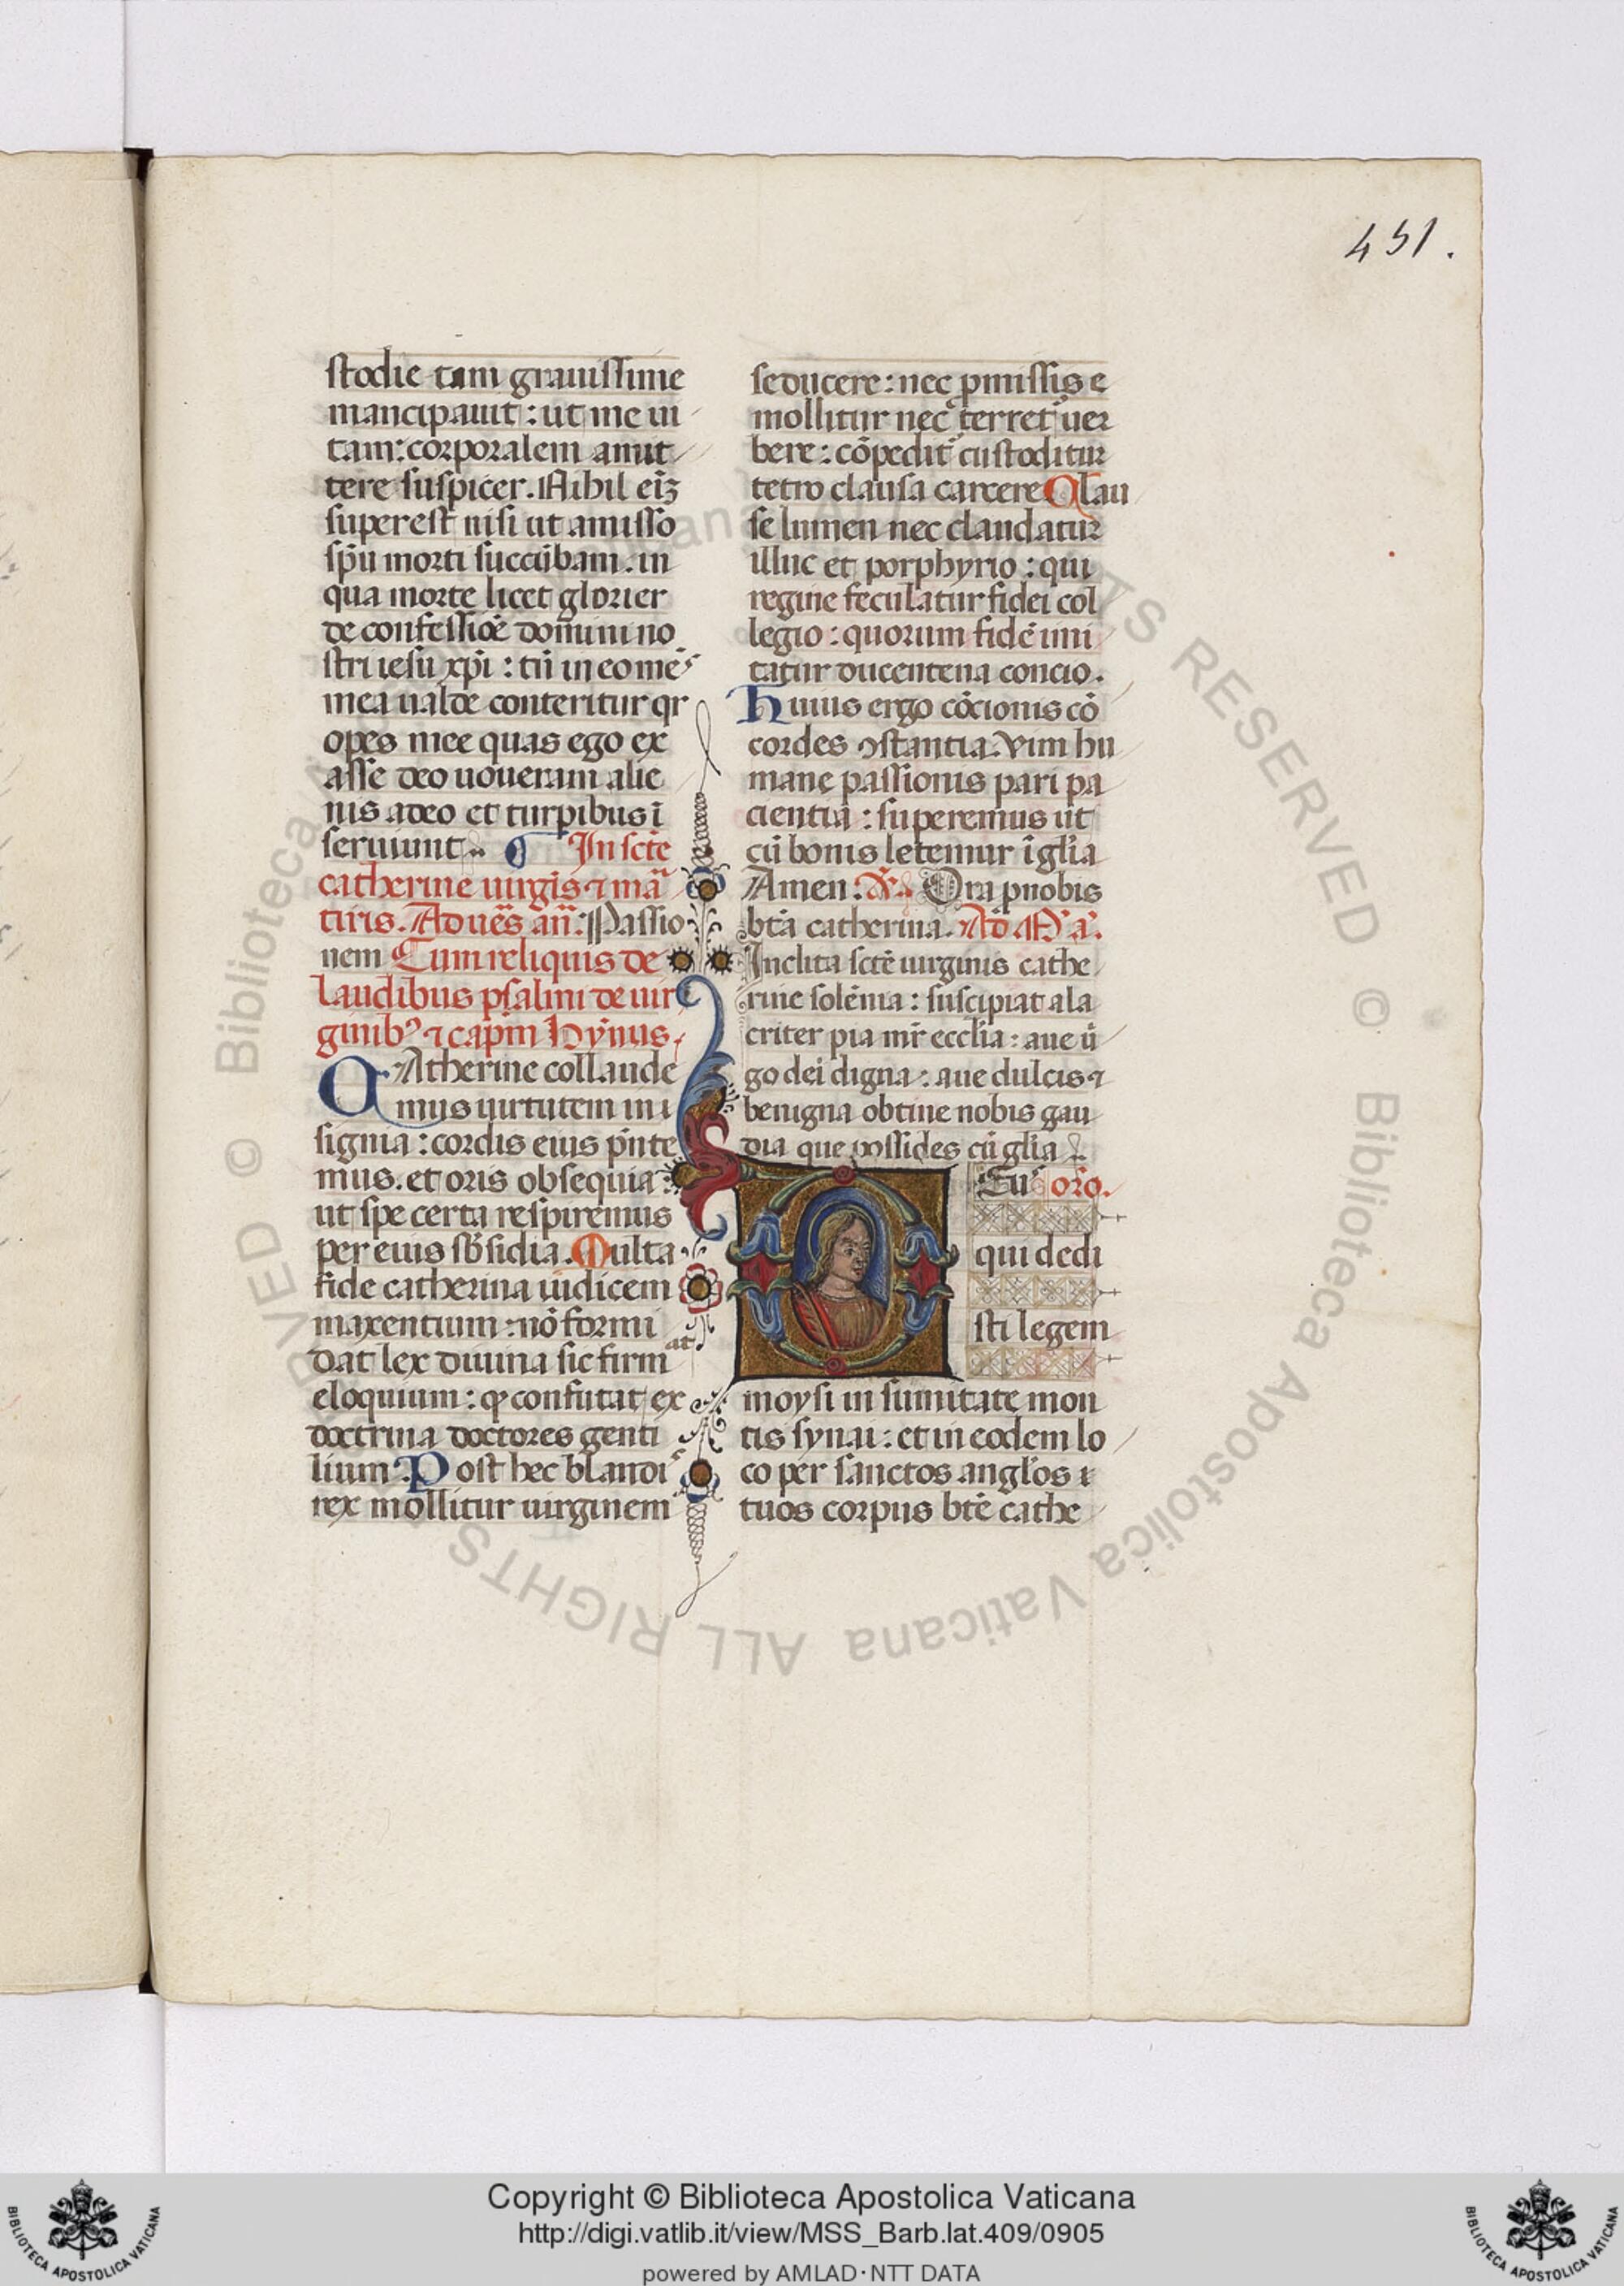 451.
stodie tam grauissime
mancipauit : ut me ui
tam: corporalem amit
tere suspicer. Nihil eiꝫ
superest nisi ut amisso
sp̄u morti succūbam. in
qua morte licet glorier
de confessiōe domini no
stri iesu xp̄i : tn̄ in eo mēs
mea ualde conteritur qr
opes mee quas ego ex
asse deo uoueram alie
nis adeo et turpibus ī
seruiunt. In scte
catherine uirgīs ⁊ ma
tiris. Ad ues̄ an̄. Passio
nem Cum reliquis de
laudibus psalmi de uir
ginibꝰ ⁊ capm̄ Hȳnus.
CAtherine collaude
mus uirtutem in i
signia : cordis eius p̄nte
mus. et oris obsequia :
ut spe certa respiremus
per eius sb̄sidia. Multa
fide catherina iudicem
maxentium : nō formi
dat lex diuina sic firmat
eloquium : qȝ confutat ex
doctrina doctores genti
lium. Post hec blandit
rex mollitur uirginem
seducere : nec pmissis e
mollitur nec terret᷑ uer
bere : cōpedit᷑ custoditur
tetro clausa carcere Clau
se lumen nec claudatur
illuc et porphyrio : qui
regine feculatur fidei col
legio : quorum fidē imi
tatur ducentena concio.
Huius ergo cōcionis cō
cordes ꝯstantia. vim hu
mane passionis pari pa
cientia : superemus ut
cū bonis letemur ī gl̄ia
Amen. ℣. Ora pnobis
bt̄a catherina. Ad M. a.
Inclita scte uirginis cathe
rine solēnia : suscipiat ala
criter pia mr̄ eccl̄ia : aue ū
go dei digna : aue dulcis ⁊
benigna obtine nobis gau
dia que possides cū gl̄ia
Eu oro.
qui dedi
sti legem
moysi in sūmitate mon
tis synai : et in eodem lo
co per sanctos angl̄os
tuos corpus bt̄e cathe
© Biblioteca Apostolica Vaticana ALL RIGHTS RESERVED
Copyright © Biblioteca Apostolica Vaticana
http://digi.vatlib.it/view/MSS_Barb.lat.409/0905
powered by AMLAD·NTT DATA
BIBLIOTECA APOSTOLICA VATICANA
BIBLIOTECA APOSTOLICA VATICANA